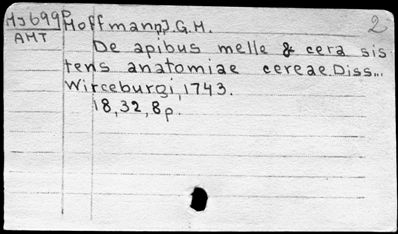 Hj699p Hoffmann, J.G.H. 2
AMT
De apibus melle & cera sis
tens anatomiae cereae Diss...
Wirceburgi, 1743.
18, 32, 8 p.